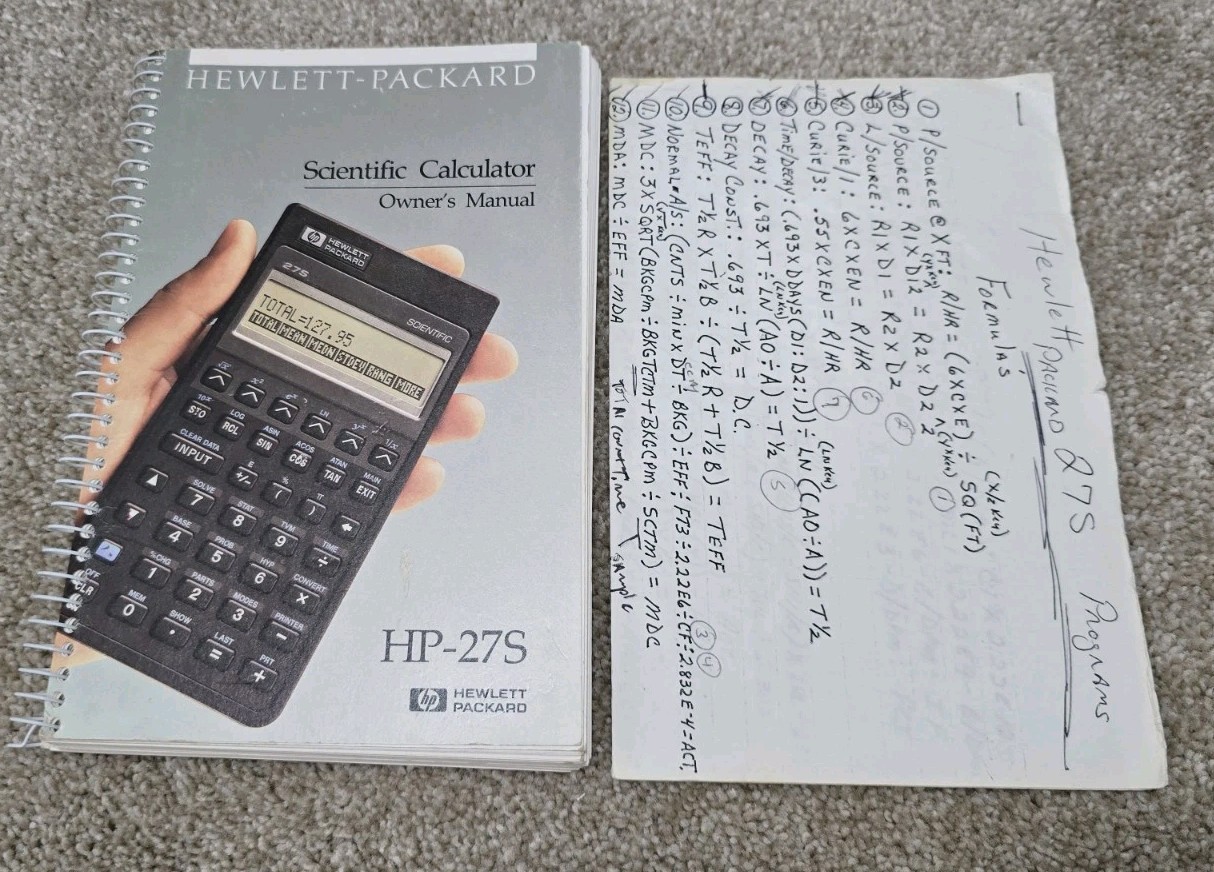 HEWLETT-PACKARD
Scientific Calculator
Owner's Manual
hp HEWLETT
PACKARD
27S
SCIENTIFIC
TOTAL=127.95
TOTAL MEAN MEDN STDEV RANG MORE
√x x² eˣ LN yˣ 1/x
10ˣ LOG ASIN ACOS ATAN MAIN
STO RCL SIN COS TAN EXIT
CLEAR DATA E % π
INPUT +/- ( ) ←
SOLVE STAT TVM TIME
▲ 7 8 9 ÷
BASE PROB HYP CONVERT
▼ 4 5 6 ×
%CHG PARTS MODES PRINTER
1 2 3 −
OFF MEM SHOW LAST PRT
CLR 0 . = +
HP-27S
hp HEWLETT
PACKARD
Hewlett PACKARD 27S Programs
Formulas
(X/2 Key)
① P/SOURCE @ X FT: R/HR = (6XCXE) ÷ SQ(FT)
② P/SOURCE: R1 X D1^2 = R2 X D2^2 (YX Key) ①
(YX Key)
③ L/SOURCE: R1 X D1 = R2 X D2 ②
④ CURIE/1: 6XCXEN = R/HR ⑥
⑤ CURIE/3: .55XCXEN = R/HR ⑦
(LN Key)
⑥ Time/DECAY: (.693 X DDAYS(D1:D2:1)) ÷ LN((AO÷A)) = T½
(LN Key)
⑦ DECAY: .693 X T ÷ LN(AO÷A) = T½ ⑤
⑧ DECAY CONST.: .693 ÷ T½ = D.C.
⑨ TEFF: T½R X T½B ÷ (T½R + T½B) = TEFF
⑩ NORMAL A/S: (CNTS ÷ min X DT ÷ BKG) ÷ EFF ÷ FT3 ÷ 2.22E6 ÷ CF ÷ 2.832E-4 = ACT. ③ ④
(√X Key)
⑪ MDC: 3 X SQRT(BKGCPM ÷ BKGTCTM + BKGCPM ÷ SCTM) = MDC
⑫ MDA: MDC ÷ EFF = MDA
TOTAL COUNT TIME
SAMPLE